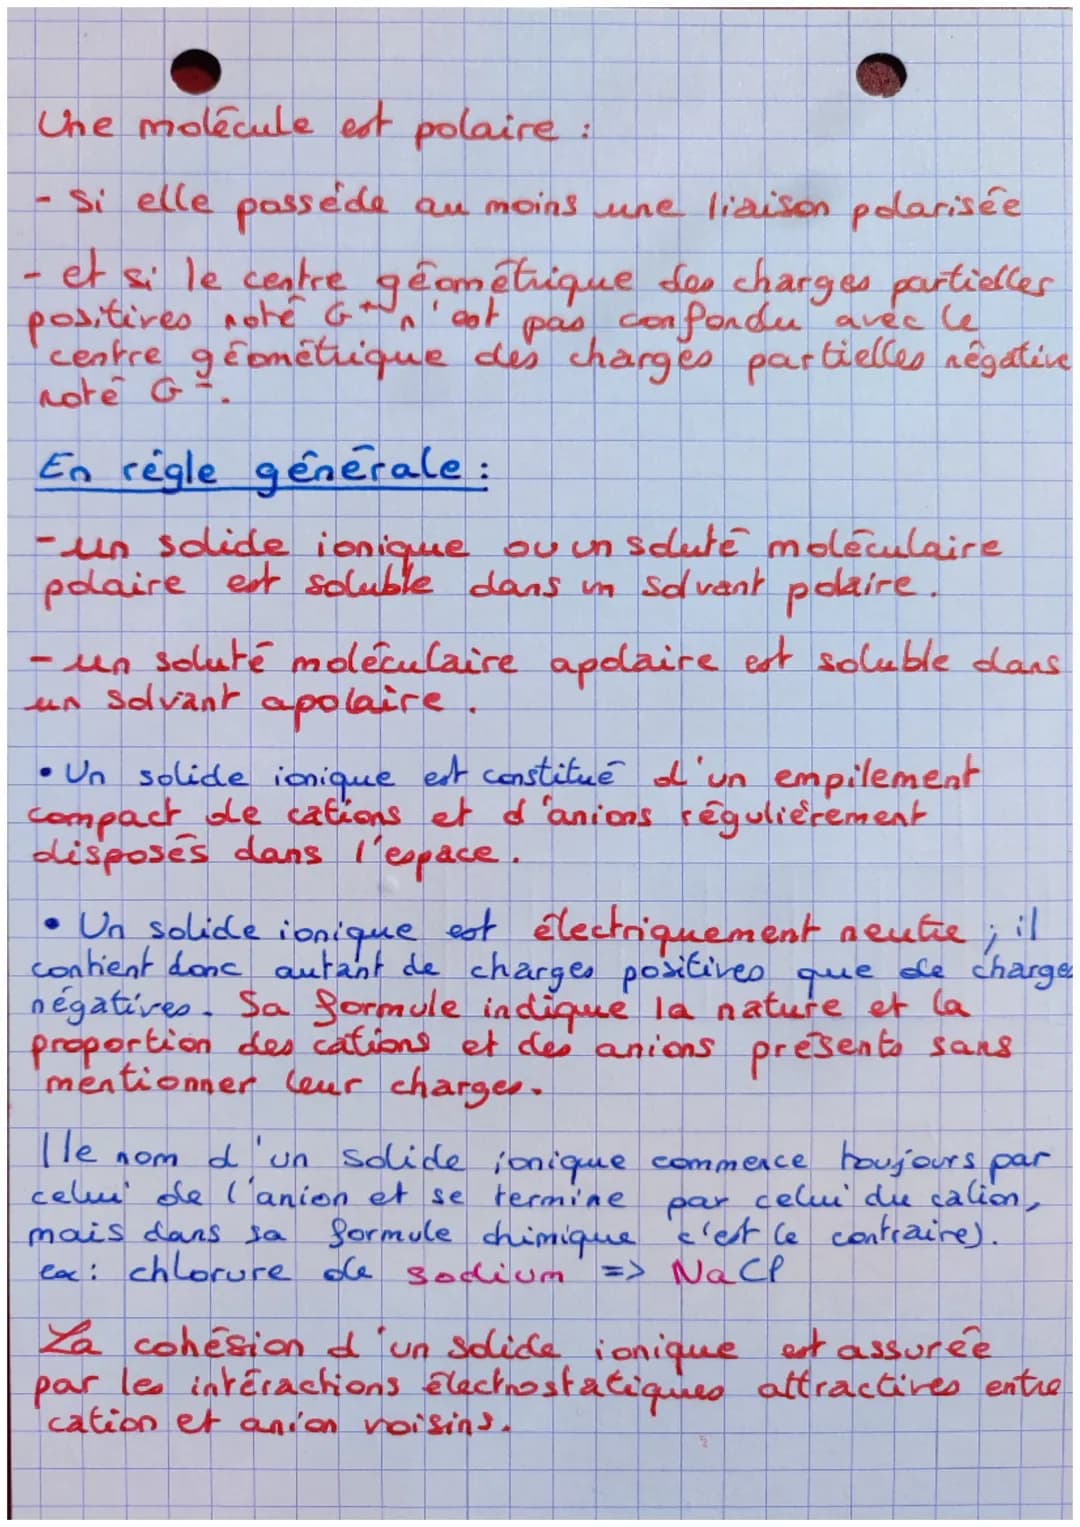 Une molécule est polaire :
- Si elle posséde au moins une liaison polarisée
- et si le centre géométrique des charges partielles
positives noté G+ n'est pas confondu avec le
centre géométrique des charges partielles négative
noté G-.
En régle générale :
- un solide ionique ou un soluté moléculaire
polaire est soluble dans un solvant polaire.
- un soluté moléculaire apolaire est soluble dans
un solvant apolaire.
• Un solide ionique est constitué d'un empilement
compact de cations et d'anions réguliérement
disposés dans l'espace.
• Un solide ionique est électriquement neutre ; il
contient donc autant de charges positives que de charges
négatives. Sa formule indique la nature et la
proportion des cations et des anions présents sans
mentionner leur charges.
(le nom d'un solide ionique commence toujours par
celui de l'anion et se termine par celui du cation,
mais dans sa formule chimique c'est le contraire).
ex : chlorure de sodium => NaCl
La cohésion d'un solide ionique est assurée
par les intéractions électrostatiques attractives entre
cation et anion voisins.